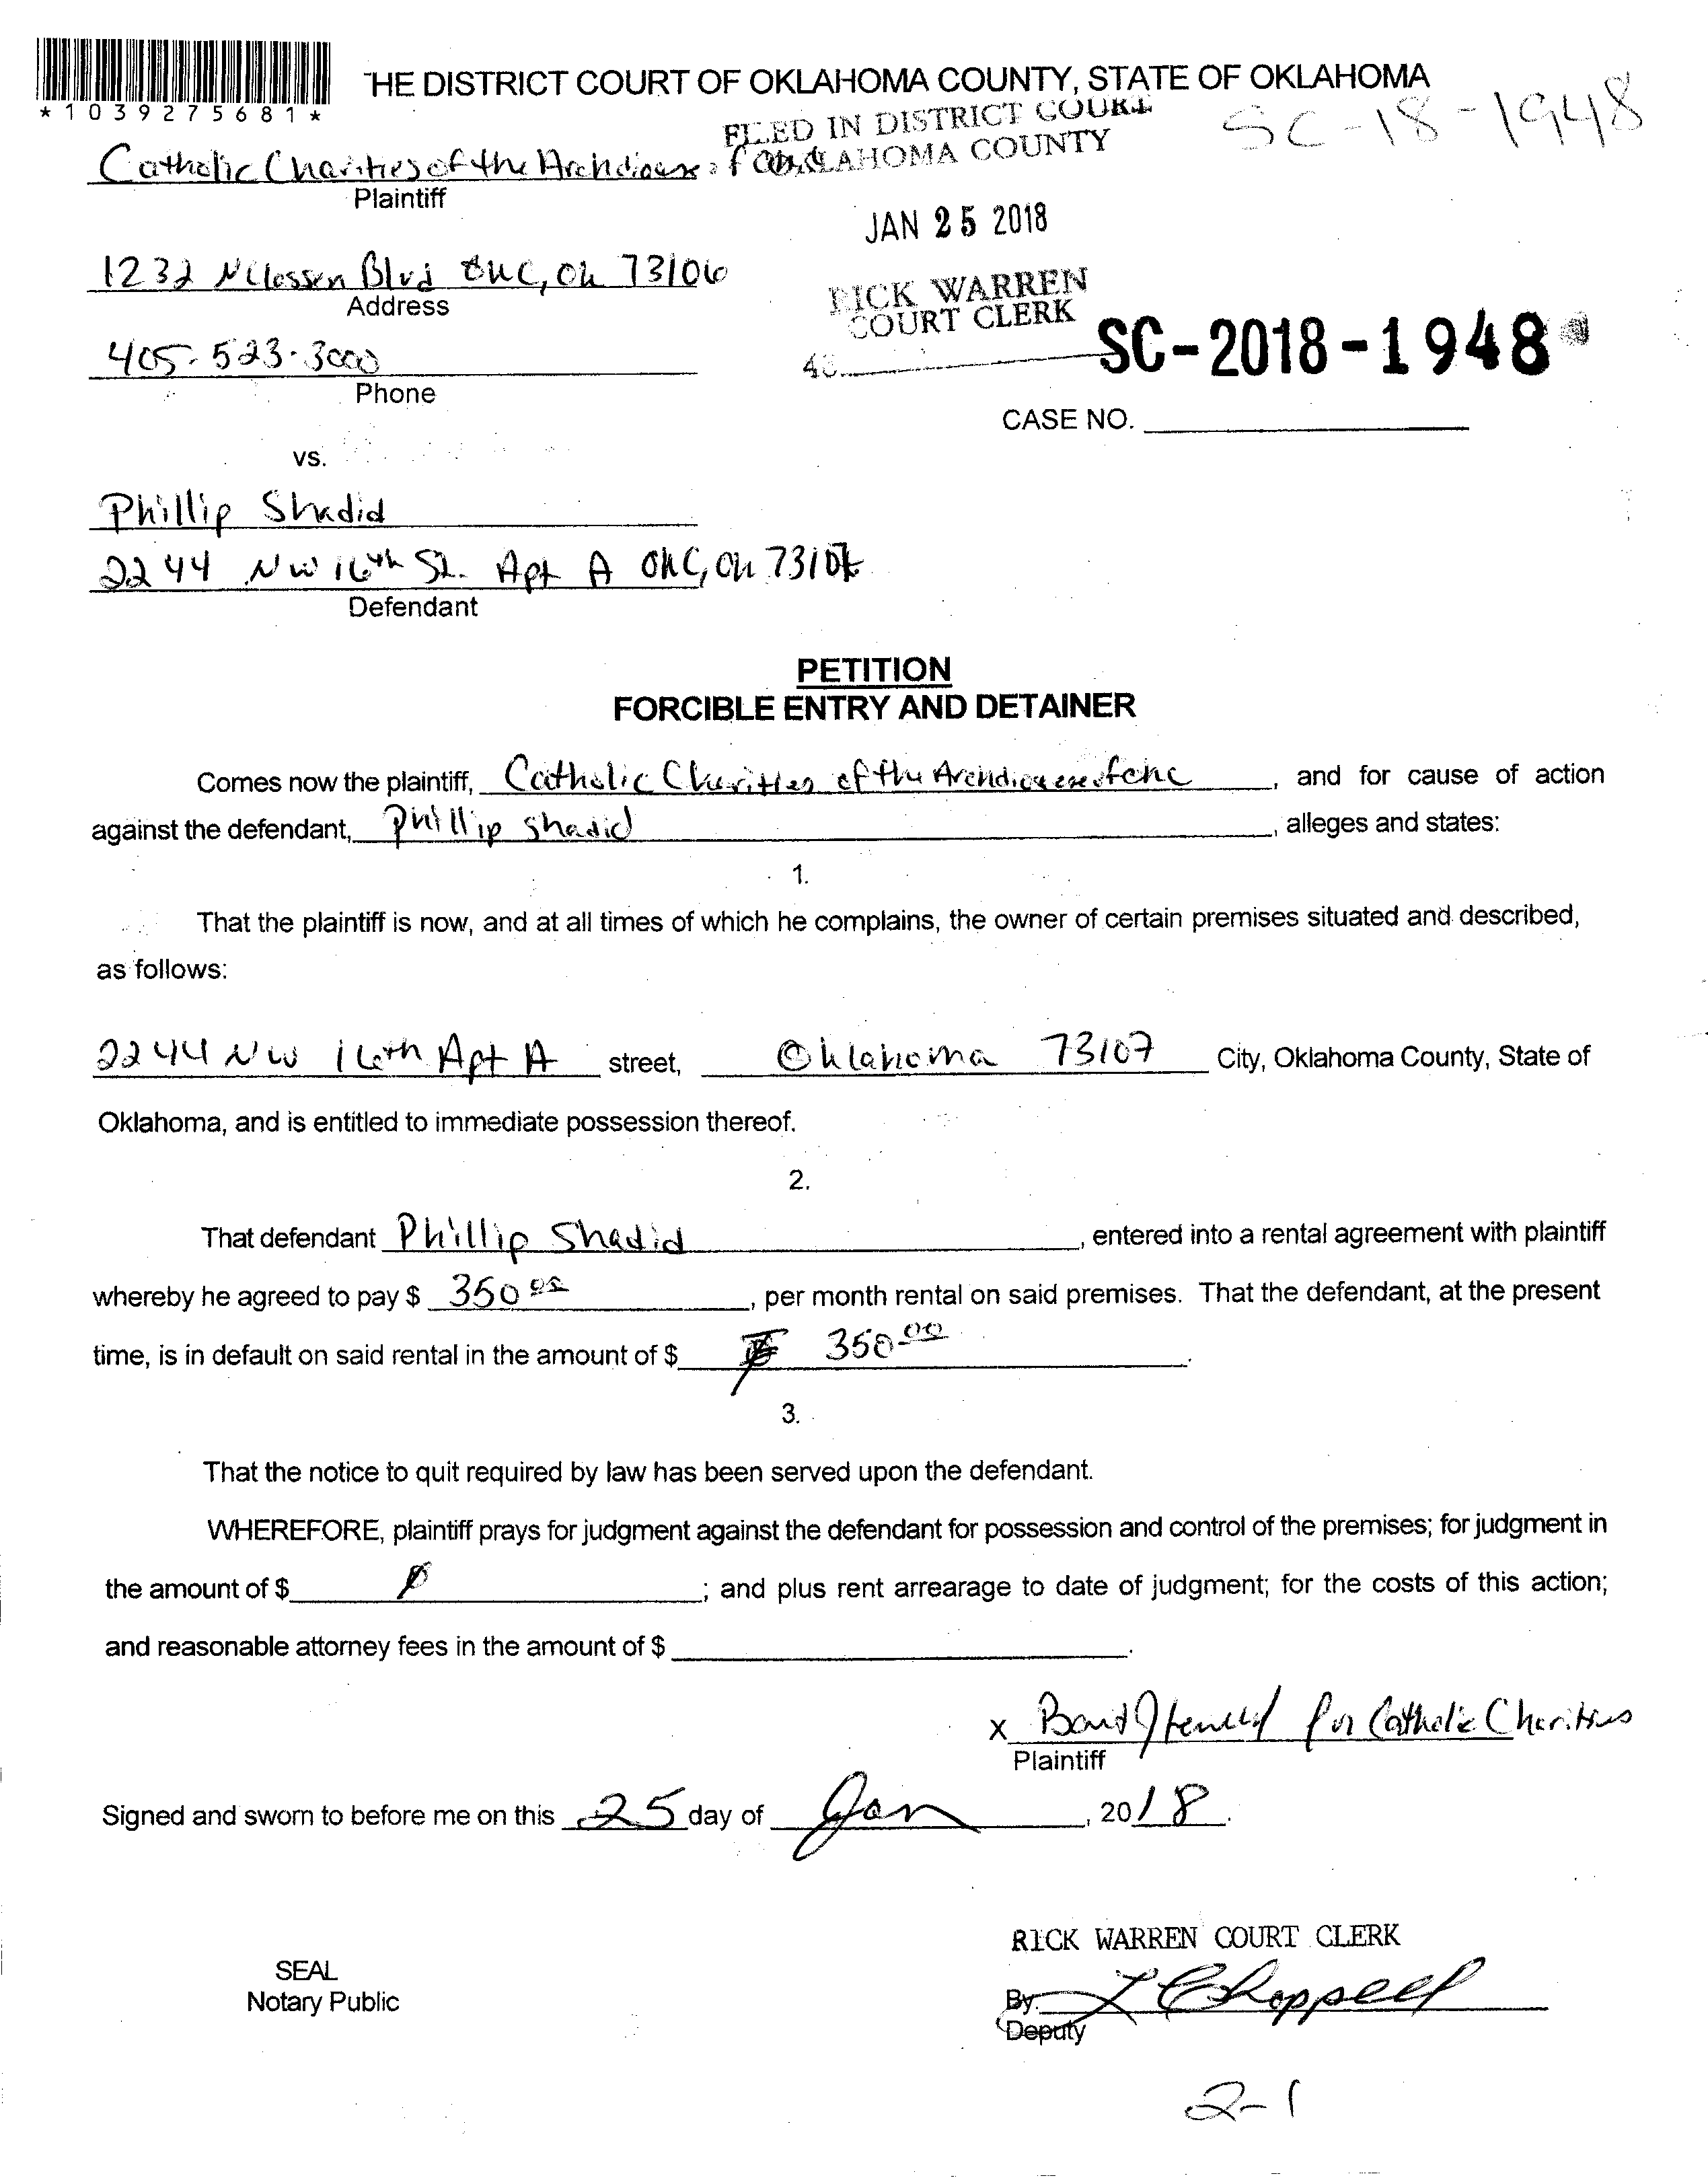 THE DISTRICT COURT OF OKLAHOMA COUNTY, STATE OF OKLAHOMA
*1039275681*
SC-18-1948
FILED IN DISTRICT COURT
OKLAHOMA COUNTY
Catholic Charities of the Archdiocese of OKC
Plaintiff
JAN 25 2018
1232 N Classen Blvd OKC, OK 73106
Address
RICK WARREN
COURT CLERK
405-523-3000
Phone
SC-2018-1948
CASE NO.
vs.
Phillip Shadid
2244 NW 16th St. Apt A OKC, OK 73107
Defendant
PETITION
FORCIBLE ENTRY AND DETAINER
Comes now the plaintiff, Catholic Charities of the Archdiocese of OKC, and for cause of action
against the defendant, Phillip Shadid, alleges and states:
1.
That the plaintiff is now, and at all times of which he complains, the owner of certain premises situated and described,
as follows:
2244 NW 16th Apt A street, Oklahoma 73107 City, Oklahoma County, State of
Oklahoma, and is entitled to immediate possession thereof.
2.
That defendant Phillip Shadid, entered into a rental agreement with plaintiff
whereby he agreed to pay $ 350.00, per month rental on said premises. That the defendant, at the present
time, is in default on said rental in the amount of $ 350.00.
3.
That the notice to quit required by law has been served upon the defendant.
WHEREFORE, plaintiff prays for judgment against the defendant for possession and control of the premises; for judgment in
the amount of $ Ø; and plus rent arrearage to date of judgment; for the costs of this action;
and reasonable attorney fees in the amount of $.
X for Catholic Charities
Plaintiff
Signed and sworn to before me on this 25 day of Jan, 2018.
RICK WARREN COURT CLERK
SEAL
Notary Public
By: Chappell
Deputy
2-1